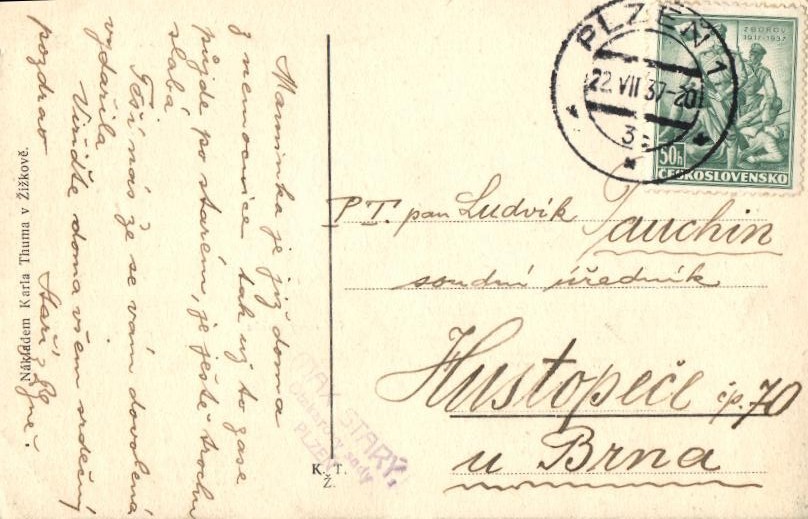 Maminka je již doma
z nemocnice tak už to zase
půjde po starém, je ještě trochu
slabá
Těší nás že se vám dovolená
vydařila
Viřiďte doma všem srdečný
pozdrav Staří,
Nákladem Karla Thuma v Žižkově.
K. T.
Ž.
MAX STARÝ,
sady
PLZEŇ
PLZEŇ 1
22. VII 37-20
3
ZBOROV
1917-1937
50h
ČESKOSLOVENSKO
P.T. pan Ludvík Pauchin
soudní úředník
Hustopeče čp. 70
u Brna